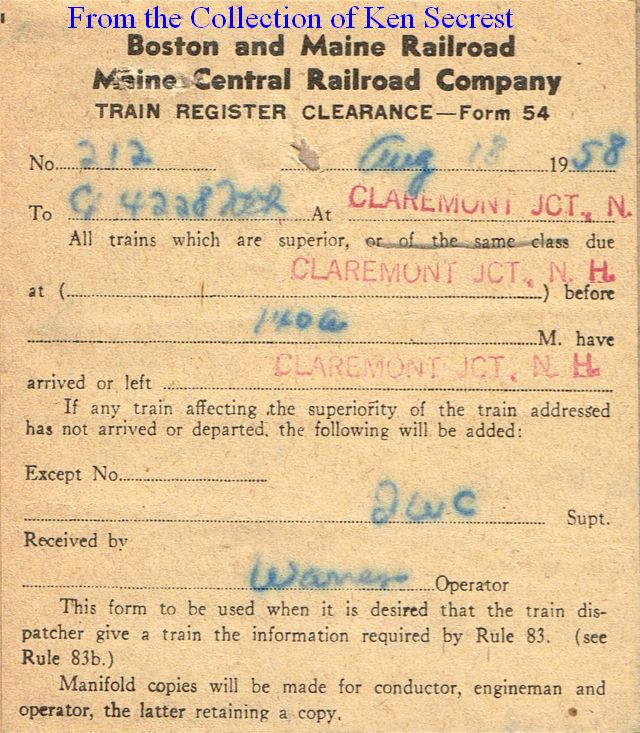 From the Collection of Ken Secrest
Boston and Maine Railroad
Maine Central Railroad Company
TRAIN REGISTER CLEARANCE—Form 54
No. 212 Aug 18 1958
To 4228 At CLAREMONT JCT., N.
All trains which are superior, or of the same class due
CLAREMONT JCT., N. H.
at ( ) before
140a M. have
CLAREMONT JCT., N. H.
arrived or left
If any train affecting the superiority of the train addressed
has not arrived or departed, the following will be added:
Except No.
JWC Supt.
Received by
Operator
This form to be used when it is desired that the train dis-
patcher give a train the information required by Rule 83. (see
Rule 83b.)
Manifold copies will be made for conductor, engineman and
operator, the latter retaining a copy.